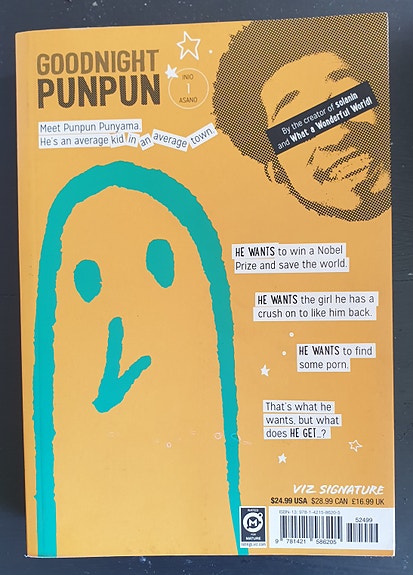 GOODNIGHT
PUNPUN
INIO
1
ASANO
By the creator of solanin
and What a Wonderful World!
Meet Punpun Punyama.
He's an average kid in an average town.
HE WANTS to win a Nobel
Prize and save the world.
HE WANTS the girl he has a
crush on to like him back.
HE WANTS to find
some porn.
That's what he
wants, but what
does HE GET...?
VIZ SIGNATURE
$24.99 USA $28.99 CAN £16.99 UK
ISBN-13: 978-1-4215-8620-5
52499
RATED
M
FOR
MATURE
ratings.viz.com
9 781421 586205